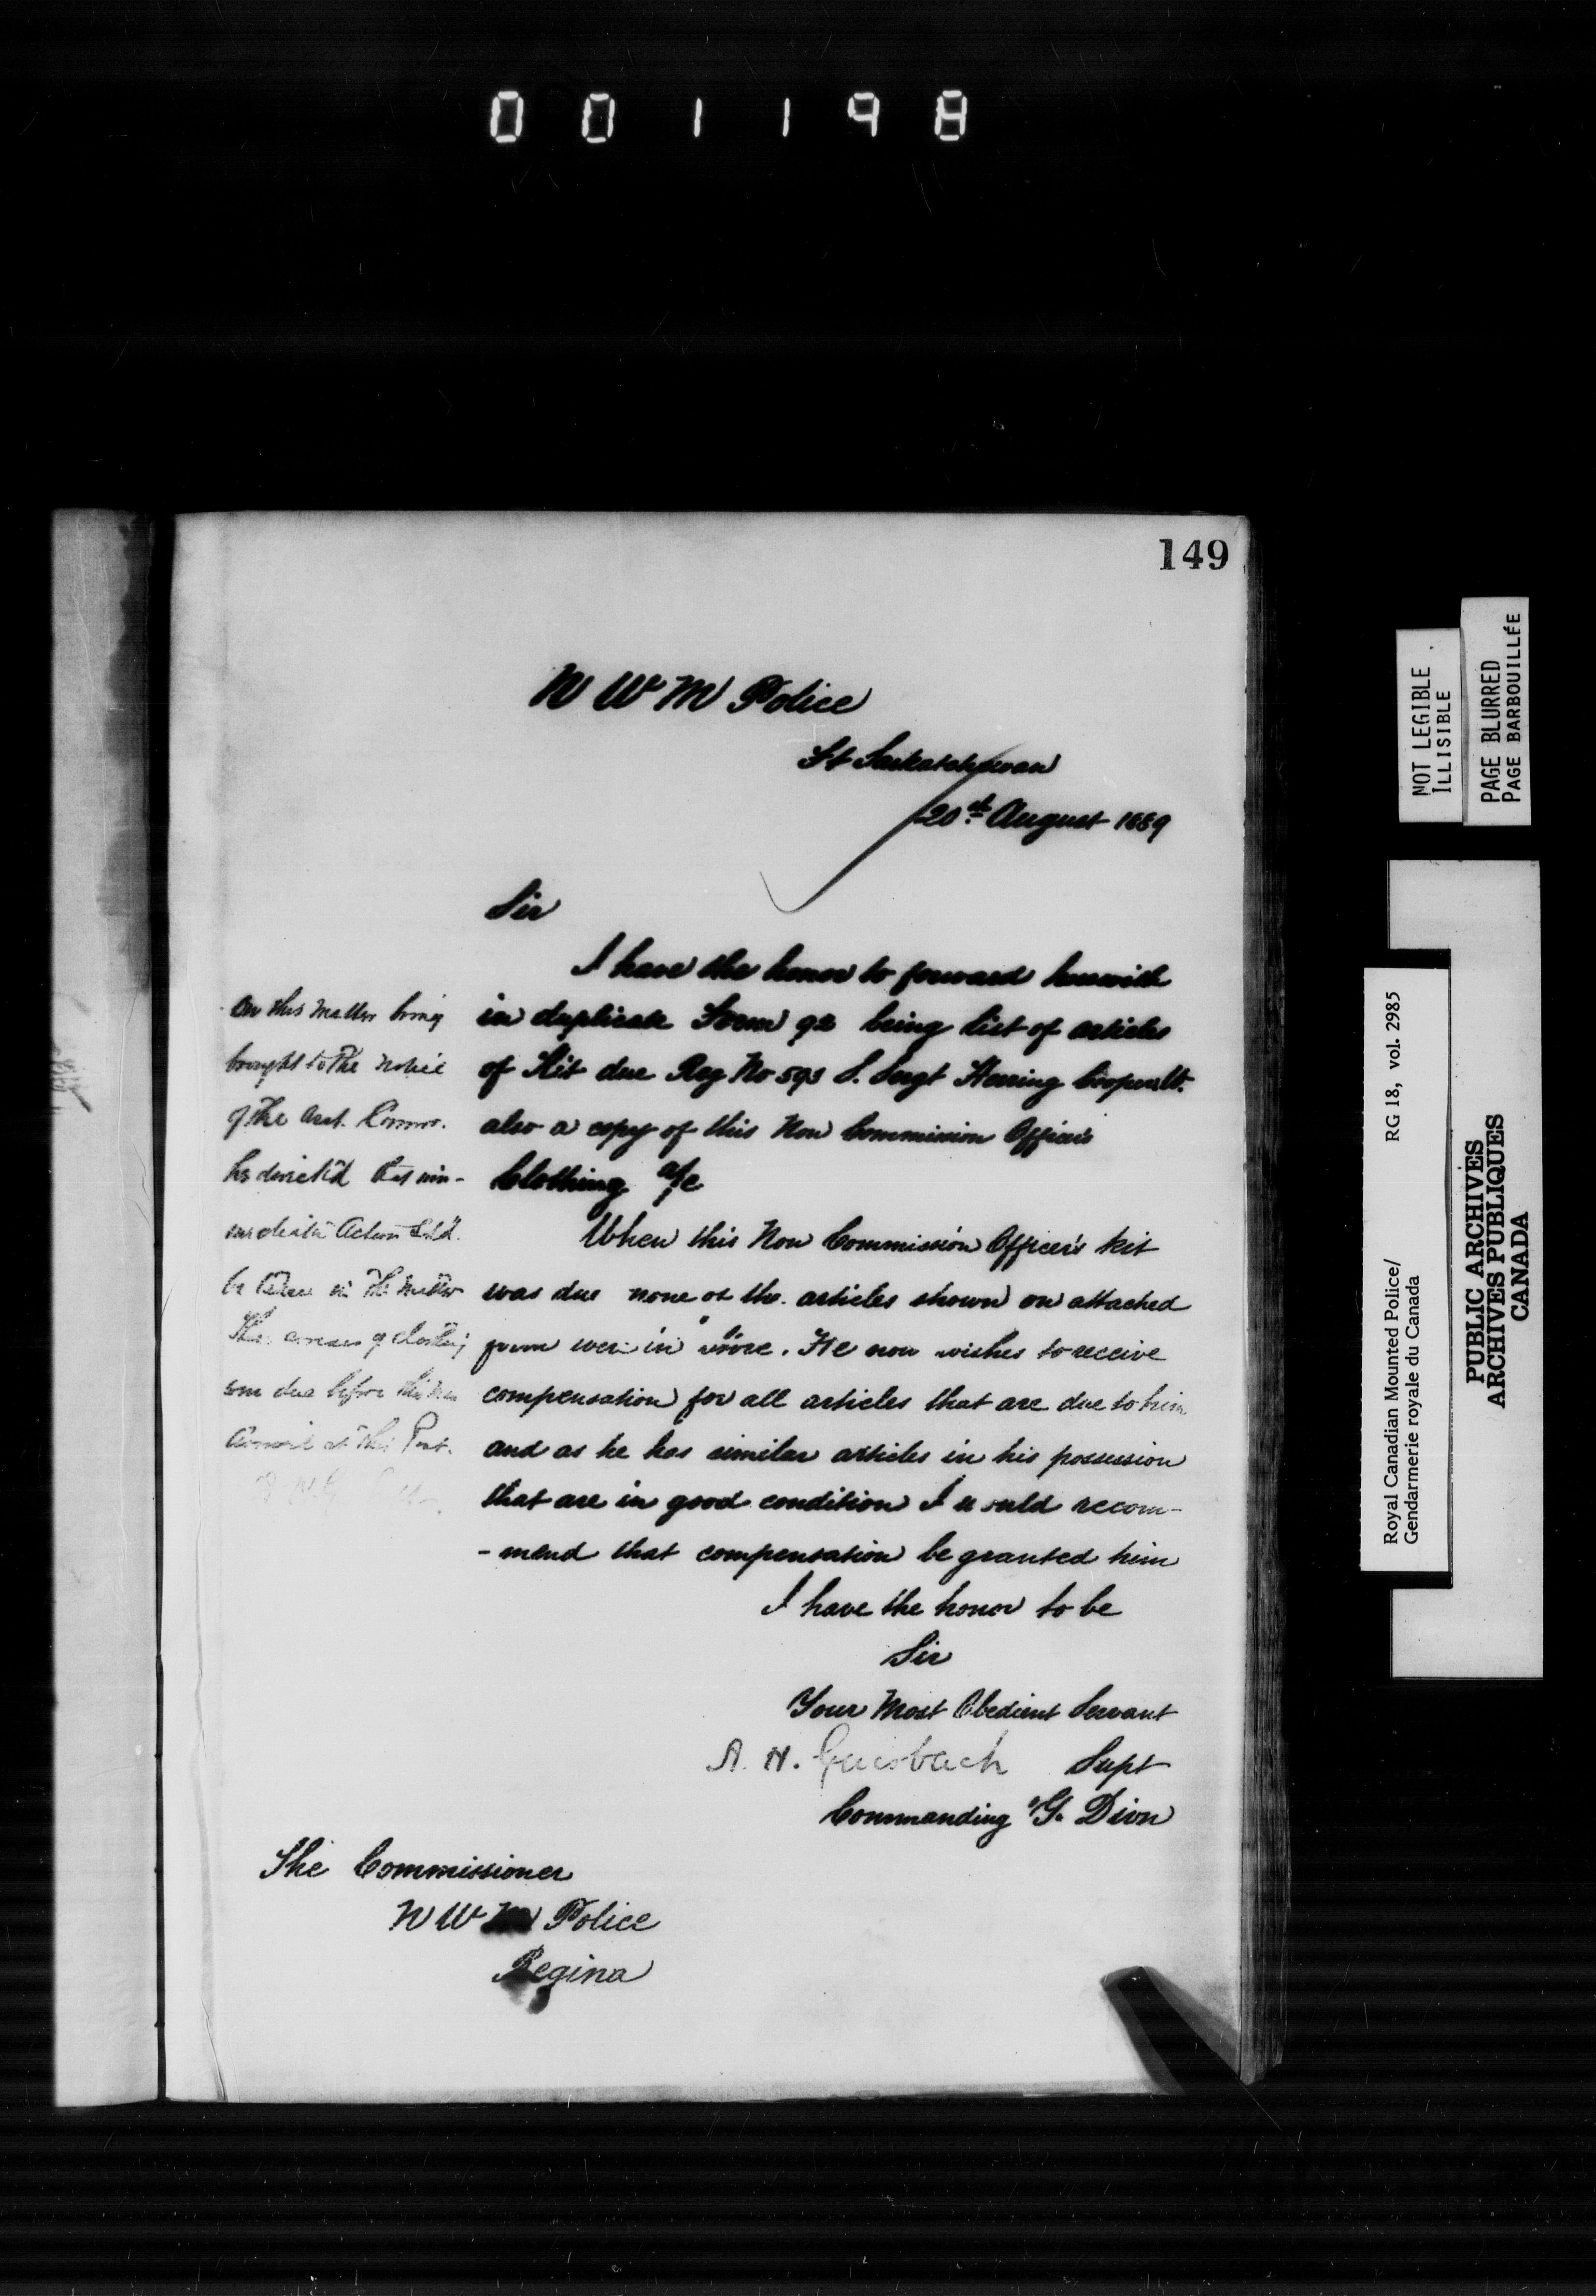 001198
149
N W M Police
Ft Saskatchewan
20th August 1889
Sir
I have the honor to forward herewith
in duplicate Form 92 being list of articles
of Kit due Reg No 593 S. Sergt Herring
also a copy of this Non Commission Officer's
Clothing a/c
When this Non Commission Officer's kit
was due none of the articles shown on attached
form were in store. He now wishes to receive
compensation for all articles that are due to him
and as he has similar articles in his possession
that are in good condition I would recom-
-mend that compensation be granted him
I have the honor to be
Sir
Your Most Obedient Servant
A. H. Griesbach Supt
Commanding "G. Divn
The Commissioner
N W M Police
Regina
On this matter being
brought to the notice
of the Asst. Commr.
he directed that im-
mediate Action shd.
be taken in the matter
The arrears of clothing
were due before this man
arrived at this Post.
NOT LEGIBLE
ILLISIBLE
PAGE BLURRED
PAGE BARBOUILLÉE
Royal Canadian Mounted Police/
Gendarmerie royale du Canada
RG 18, vol. 2985
PUBLIC ARCHIVES
ARCHIVES PUBLIQUES
CANADA